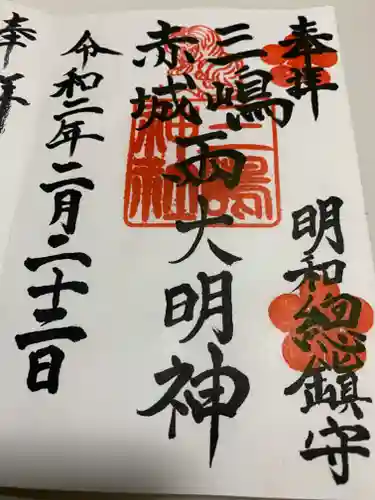 奉拝
明和総鎮守
三嶋
赤城
両大明神
三嶋
神社
令和二年二月二十二日
奉拝